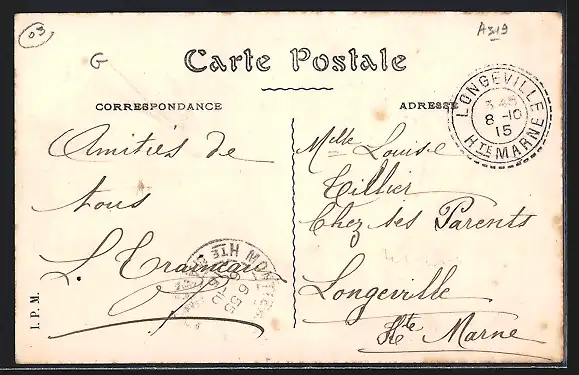 03
G
Carte Postale
CORRESPONDANCE
ADRESSE
LONGEVILLE
3 45
8 - 10
15
HTE MARNE
Amitiés de
tous
L. Traineau
HTE M
6 55
I. P. M.
Melle Louise
Tillier
Chez ses Parents
Longeville
Hte Marne